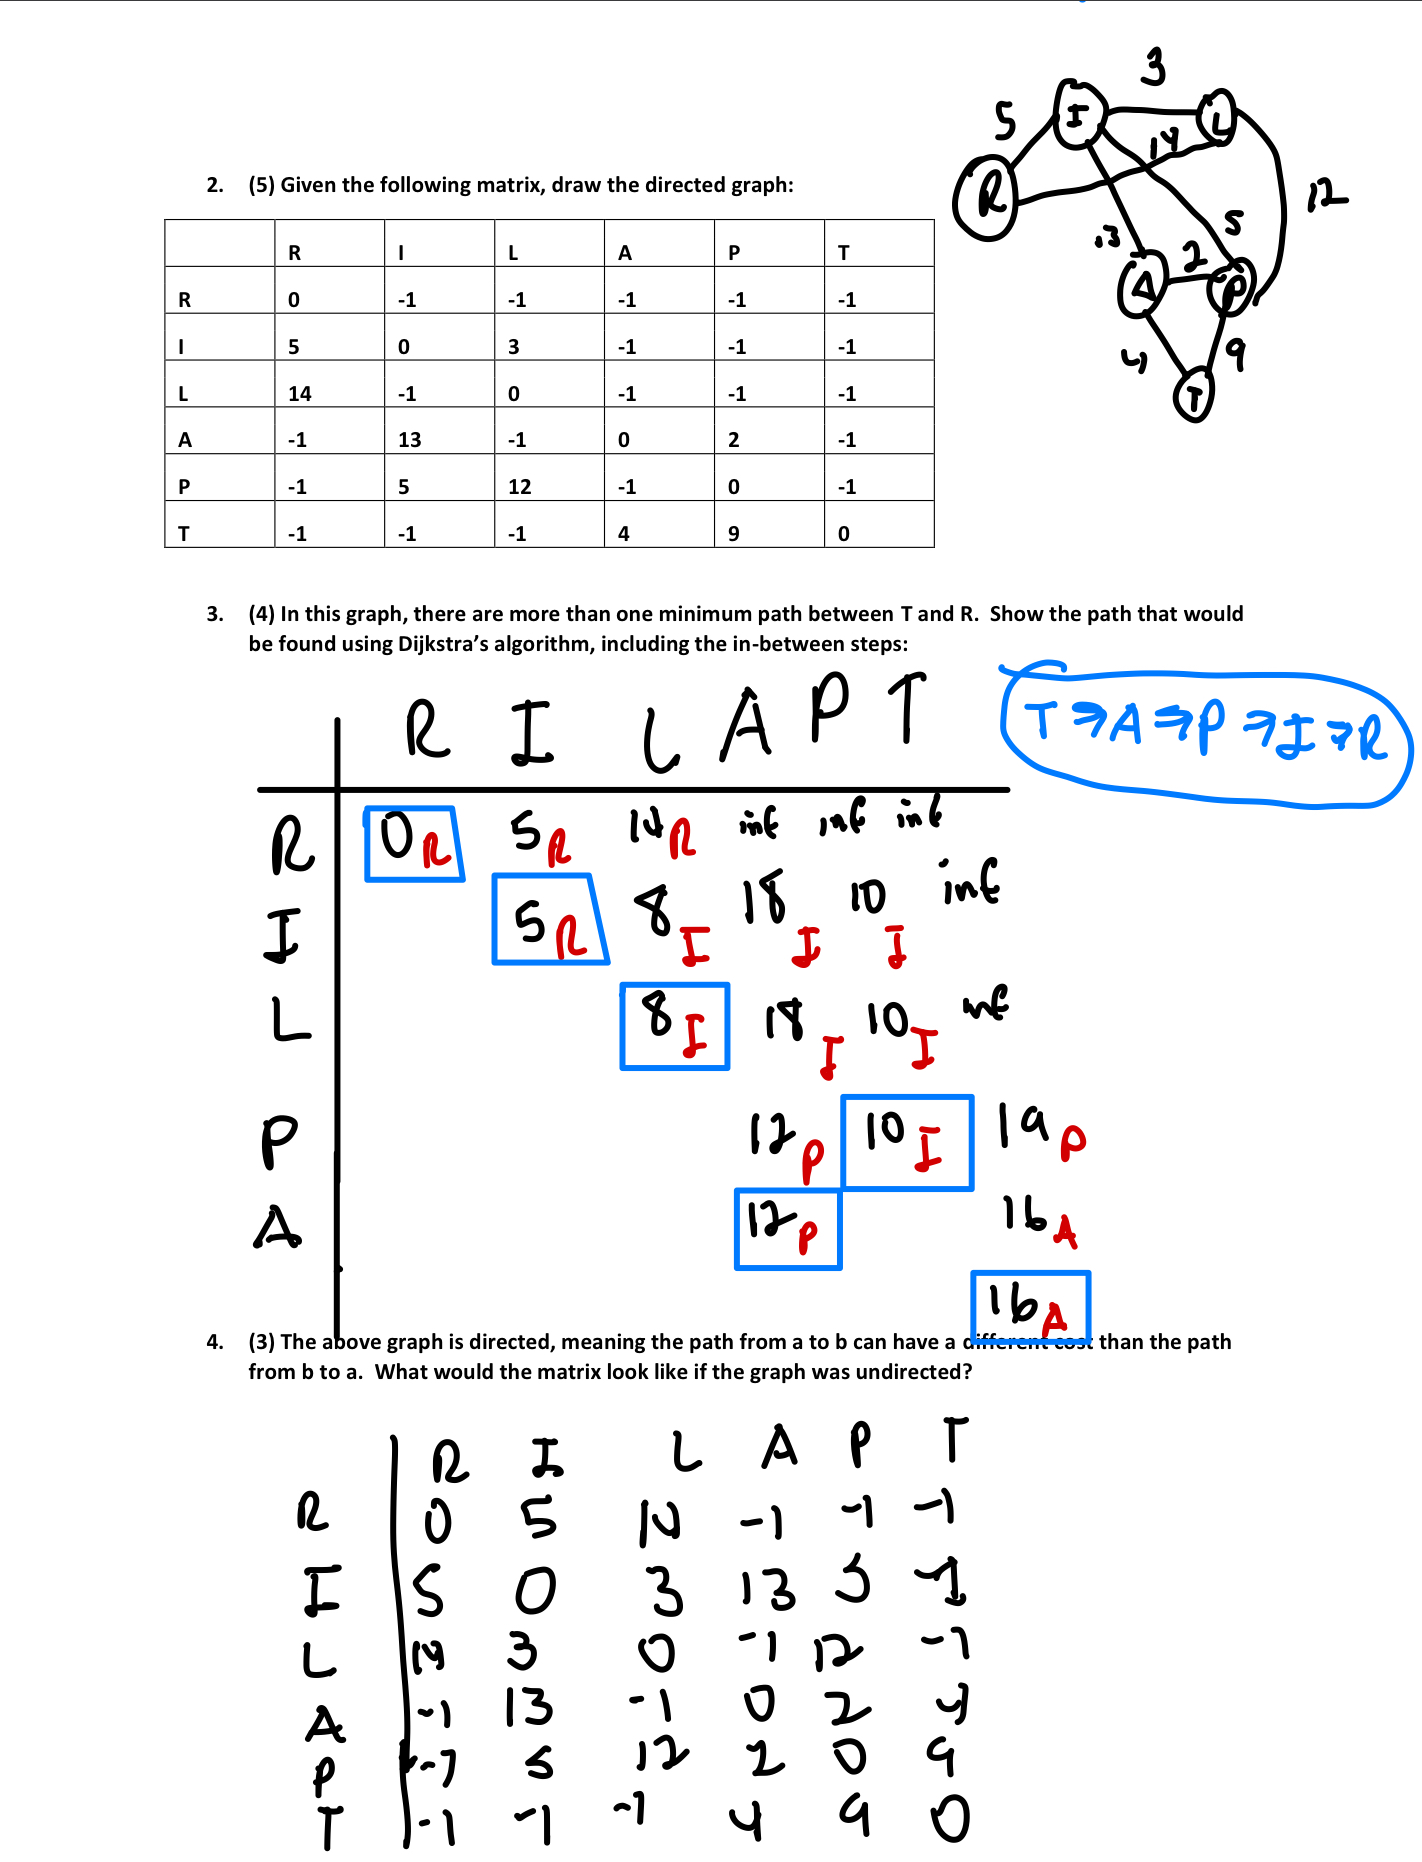 3
5 I L
14
2. (5) Given the following matrix, draw the directed graph:
R 12
5
13 2
A P
R I L A P T
R 0 -1 -1 -1 -1 -1
I 5 0 3 -1 -1 -1
4 9
T
L 14 -1 0 -1 -1 -1
A -1 13 -1 0 2 -1
P -1 5 12 -1 0 -1
T -1 -1 -1 4 9 0
3. (4) In this graph, there are more than one minimum path between T and R. Show the path that would
be found using Dijkstra’s algorithm, including the in-between steps:
R I L A P T
T ⇒ A ⇒ P ⇒ I ⇒ R
R 0R 5R 14R inf inf inf
I 5R 8I 18I 10I inf
L 8I 18I 10I inf
P 12P 10I 19P
A 12P 16A
16A
4. (3) The above graph is directed, meaning the path from a to b can have a different cost than the path
from b to a. What would the matrix look like if the graph was undirected?
R I L A P T
R 0 5 14 -1 -1 -1
I 5 0 3 13 5 -1
L 14 3 0 -1 12 -1
A -1 13 -1 0 2 4
P -1 5 12 2 0 9
T -1 -1 -1 4 9 0